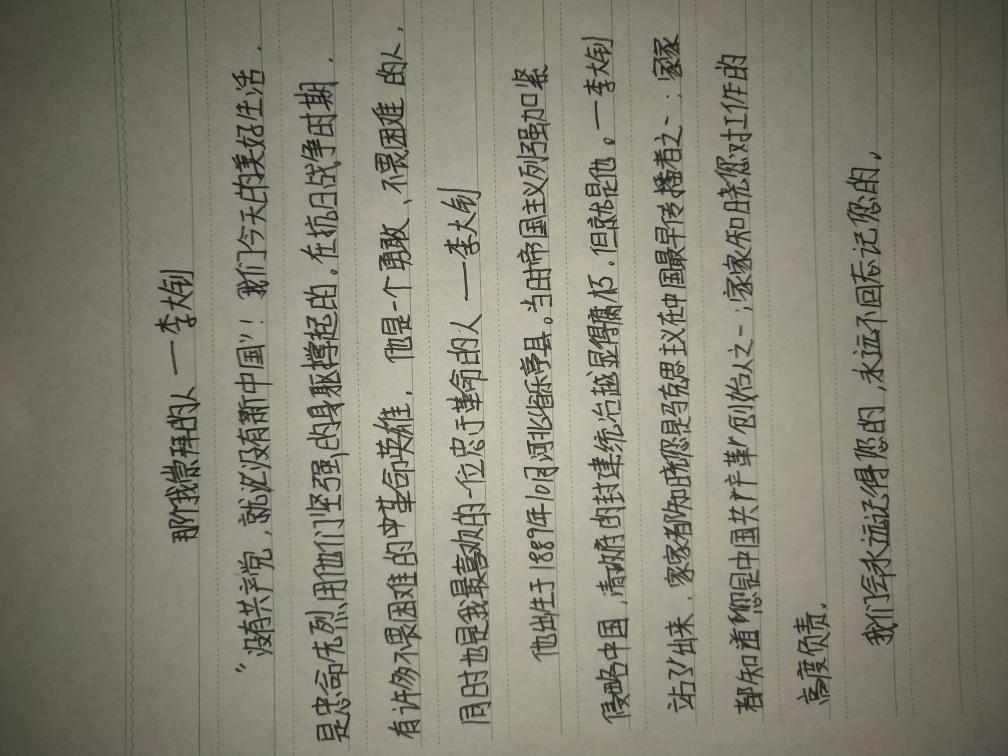 那个我崇拜的人——李大钊
“没有共产党，就没有新中国”！我们今天的美好生活，
是忠命先烈用他们坚强的身躯撑起的。在抗日战争时期，
有许多不畏困难的革命英雄，他是一个勇敢、不畏困难的人，
同时也是我最喜欢的一位忠于革命的人——李大钊
他出生于1889年10月河北省乐亭县。当时帝国主义列强加紧
侵略中国，清政府的封建统治越显得腐朽，但就是他。——李大钊
站了出来，家家都知晓您是马克思主义在中国最早传播者之一；家家
都知道您是中国共产革创始人之一；家家知晓您对工作的
高度负责。
我们会永远记得您的，永远不回忘记您的，